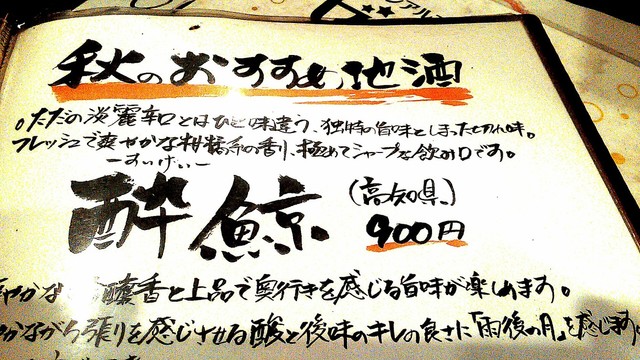 秋のおすすめ地酒
○ただの淡麗辛口とはひと味違う、独特の旨味としまった切れ味。
フレッシュで爽やかな柑橘系の香り、極めてシャープな飲み口です。
ーすいげいー
酔鯨
(高知県)
900円
やかな 醸香と上品で奥行きを感じる旨味が楽しめます。
かながら張りを感じさせる酸と後味のキレの良さに「雨後の月」を感じます